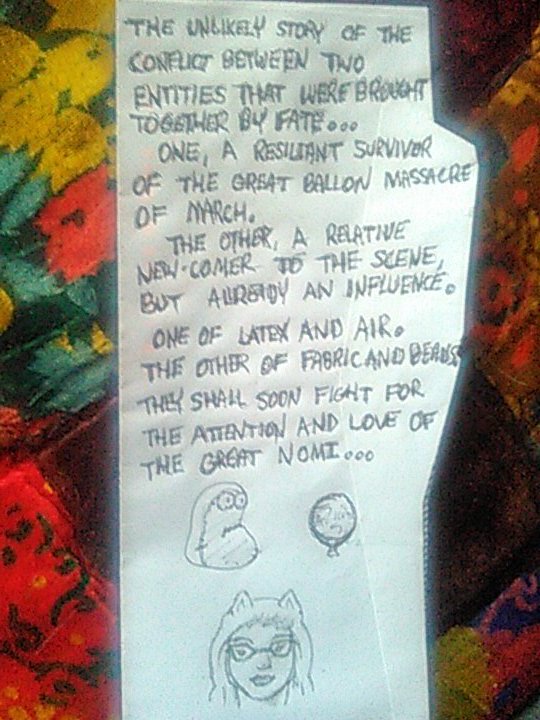 THE UNLIKELY STORY OF THE
CONFLICT BETWEEN TWO
ENTITIES THAT WERE BROUGHT
TOGETHER BY FATE...
ONE, A RESILIANT SURVIVOR
OF THE GREAT BALLON MASSACRE
OF MARCH.
THE OTHER, A RELATIVE
NEW-COMER TO THE SCENE,
BUT ALREADY AN INFLUENCE.
ONE OF LATEX AND AIR.
THE OTHER OF FABRIC AND BEADS
THEY SHALL SOON FIGHT FOR
THE ATTENTION AND LOVE OF
THE GREAT NOMI...